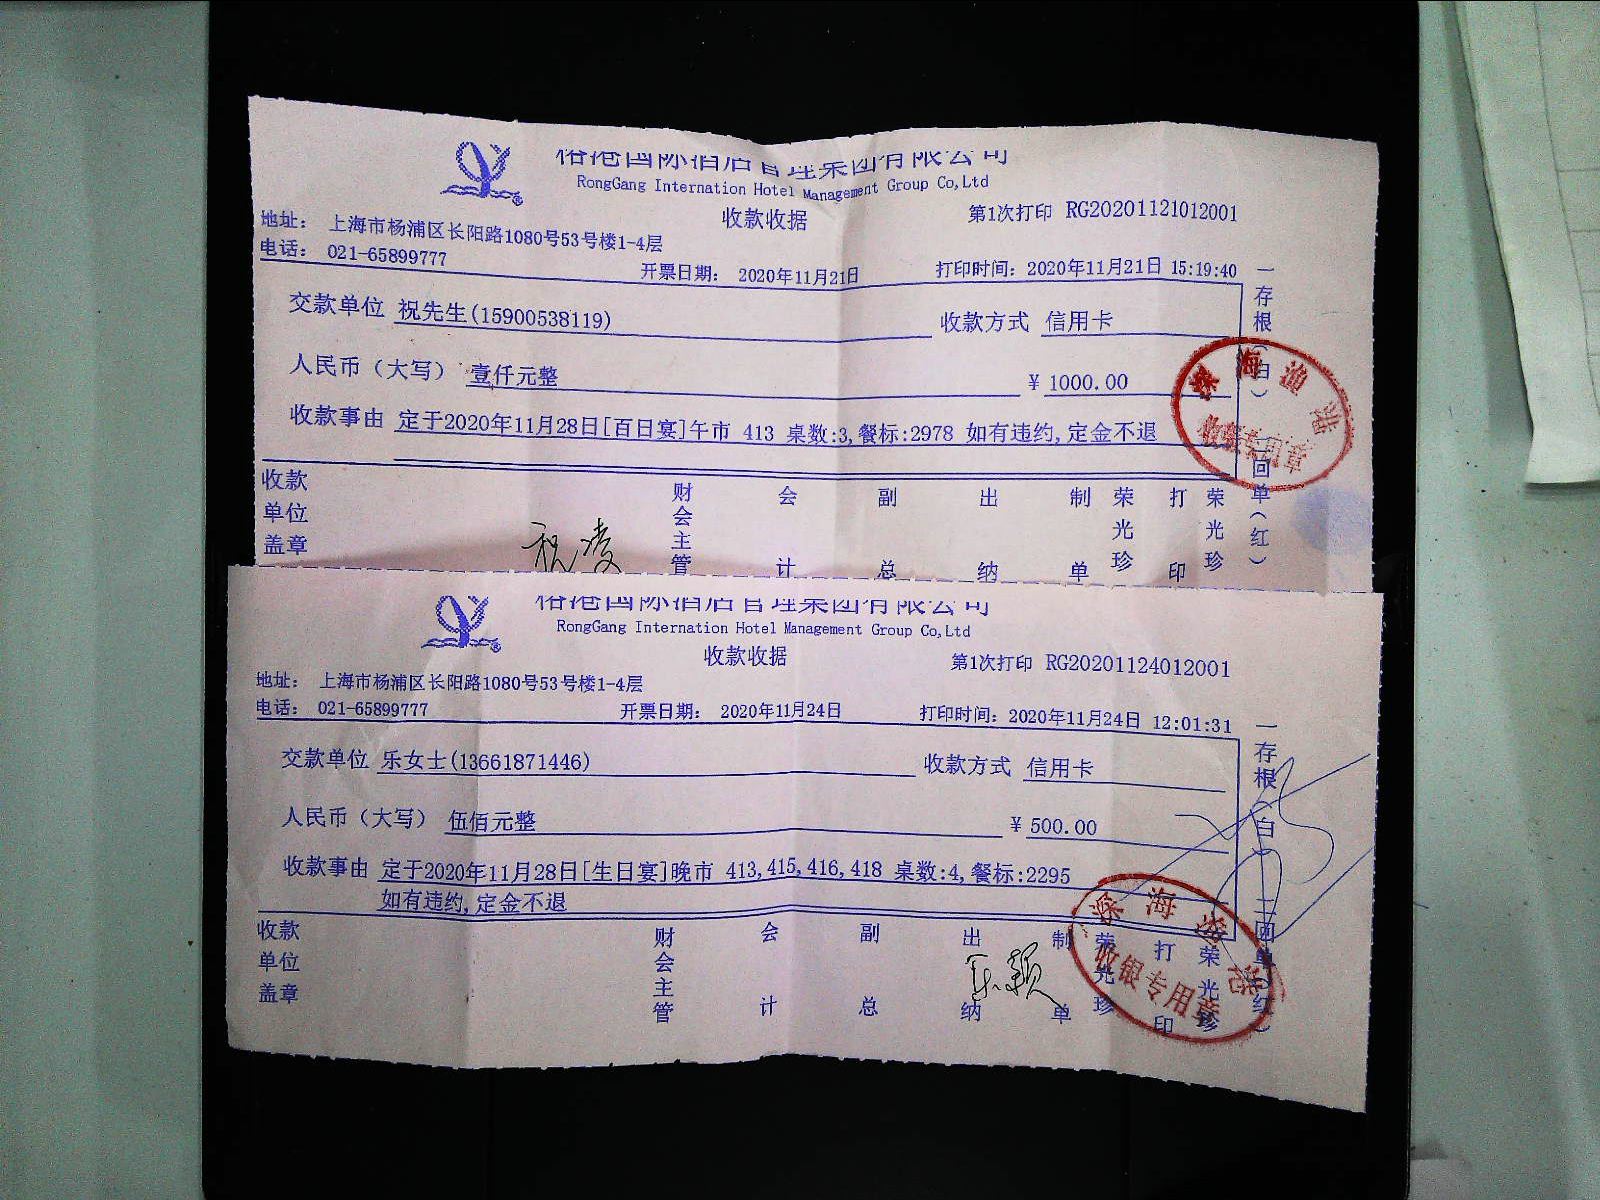 榕港国际酒店管理集团有限公司
RongGang Internation Hotel Management Group Co,Ltd
收款收据
第1次打印 RG20201121012001
地址: 上海市杨浦区长阳路1080号53号楼1-4层
电话: 021-65899777
开票日期: 2020年11月21日
打印时间:2020年11月21日 15:19:40
交款单位 祝先生(15900538119)
收款方式 信用卡
人民币(大写) 壹仟元整
¥ 1000.00
收款事由 定于2020年11月28日[百日宴]午市 413 桌数:3,餐标:2978 如有违约,定金不退
收款单位盖章
财会主管
会计
副总
出纳
制单
荣光珍
打印
荣光珍
一存根(白)
回单(红)
祝凌
深海渔港
榕港国际酒店管理集团有限公司
RongGang Internation Hotel Management Group Co,Ltd
收款收据
第1次打印 RG20201124012001
地址: 上海市杨浦区长阳路1080号53号楼1-4层
电话: 021-65899777
开票日期: 2020年11月24日
打印时间:2020年11月24日 12:01:31
交款单位 乐女士(13661871446)
收款方式 信用卡
人民币(大写) 伍佰元整
¥ 500.00
收款事由 定于2020年11月28日[生日宴]晚市 413,415,416,418 桌数:4,餐标:2295
如有违约,定金不退
收款单位盖章
财会主管
会计
副总
出纳
制单
荣光珍
打印
荣光珍
一存根(白)
二回单(红)
乐颖
深海渔港
收银专用章